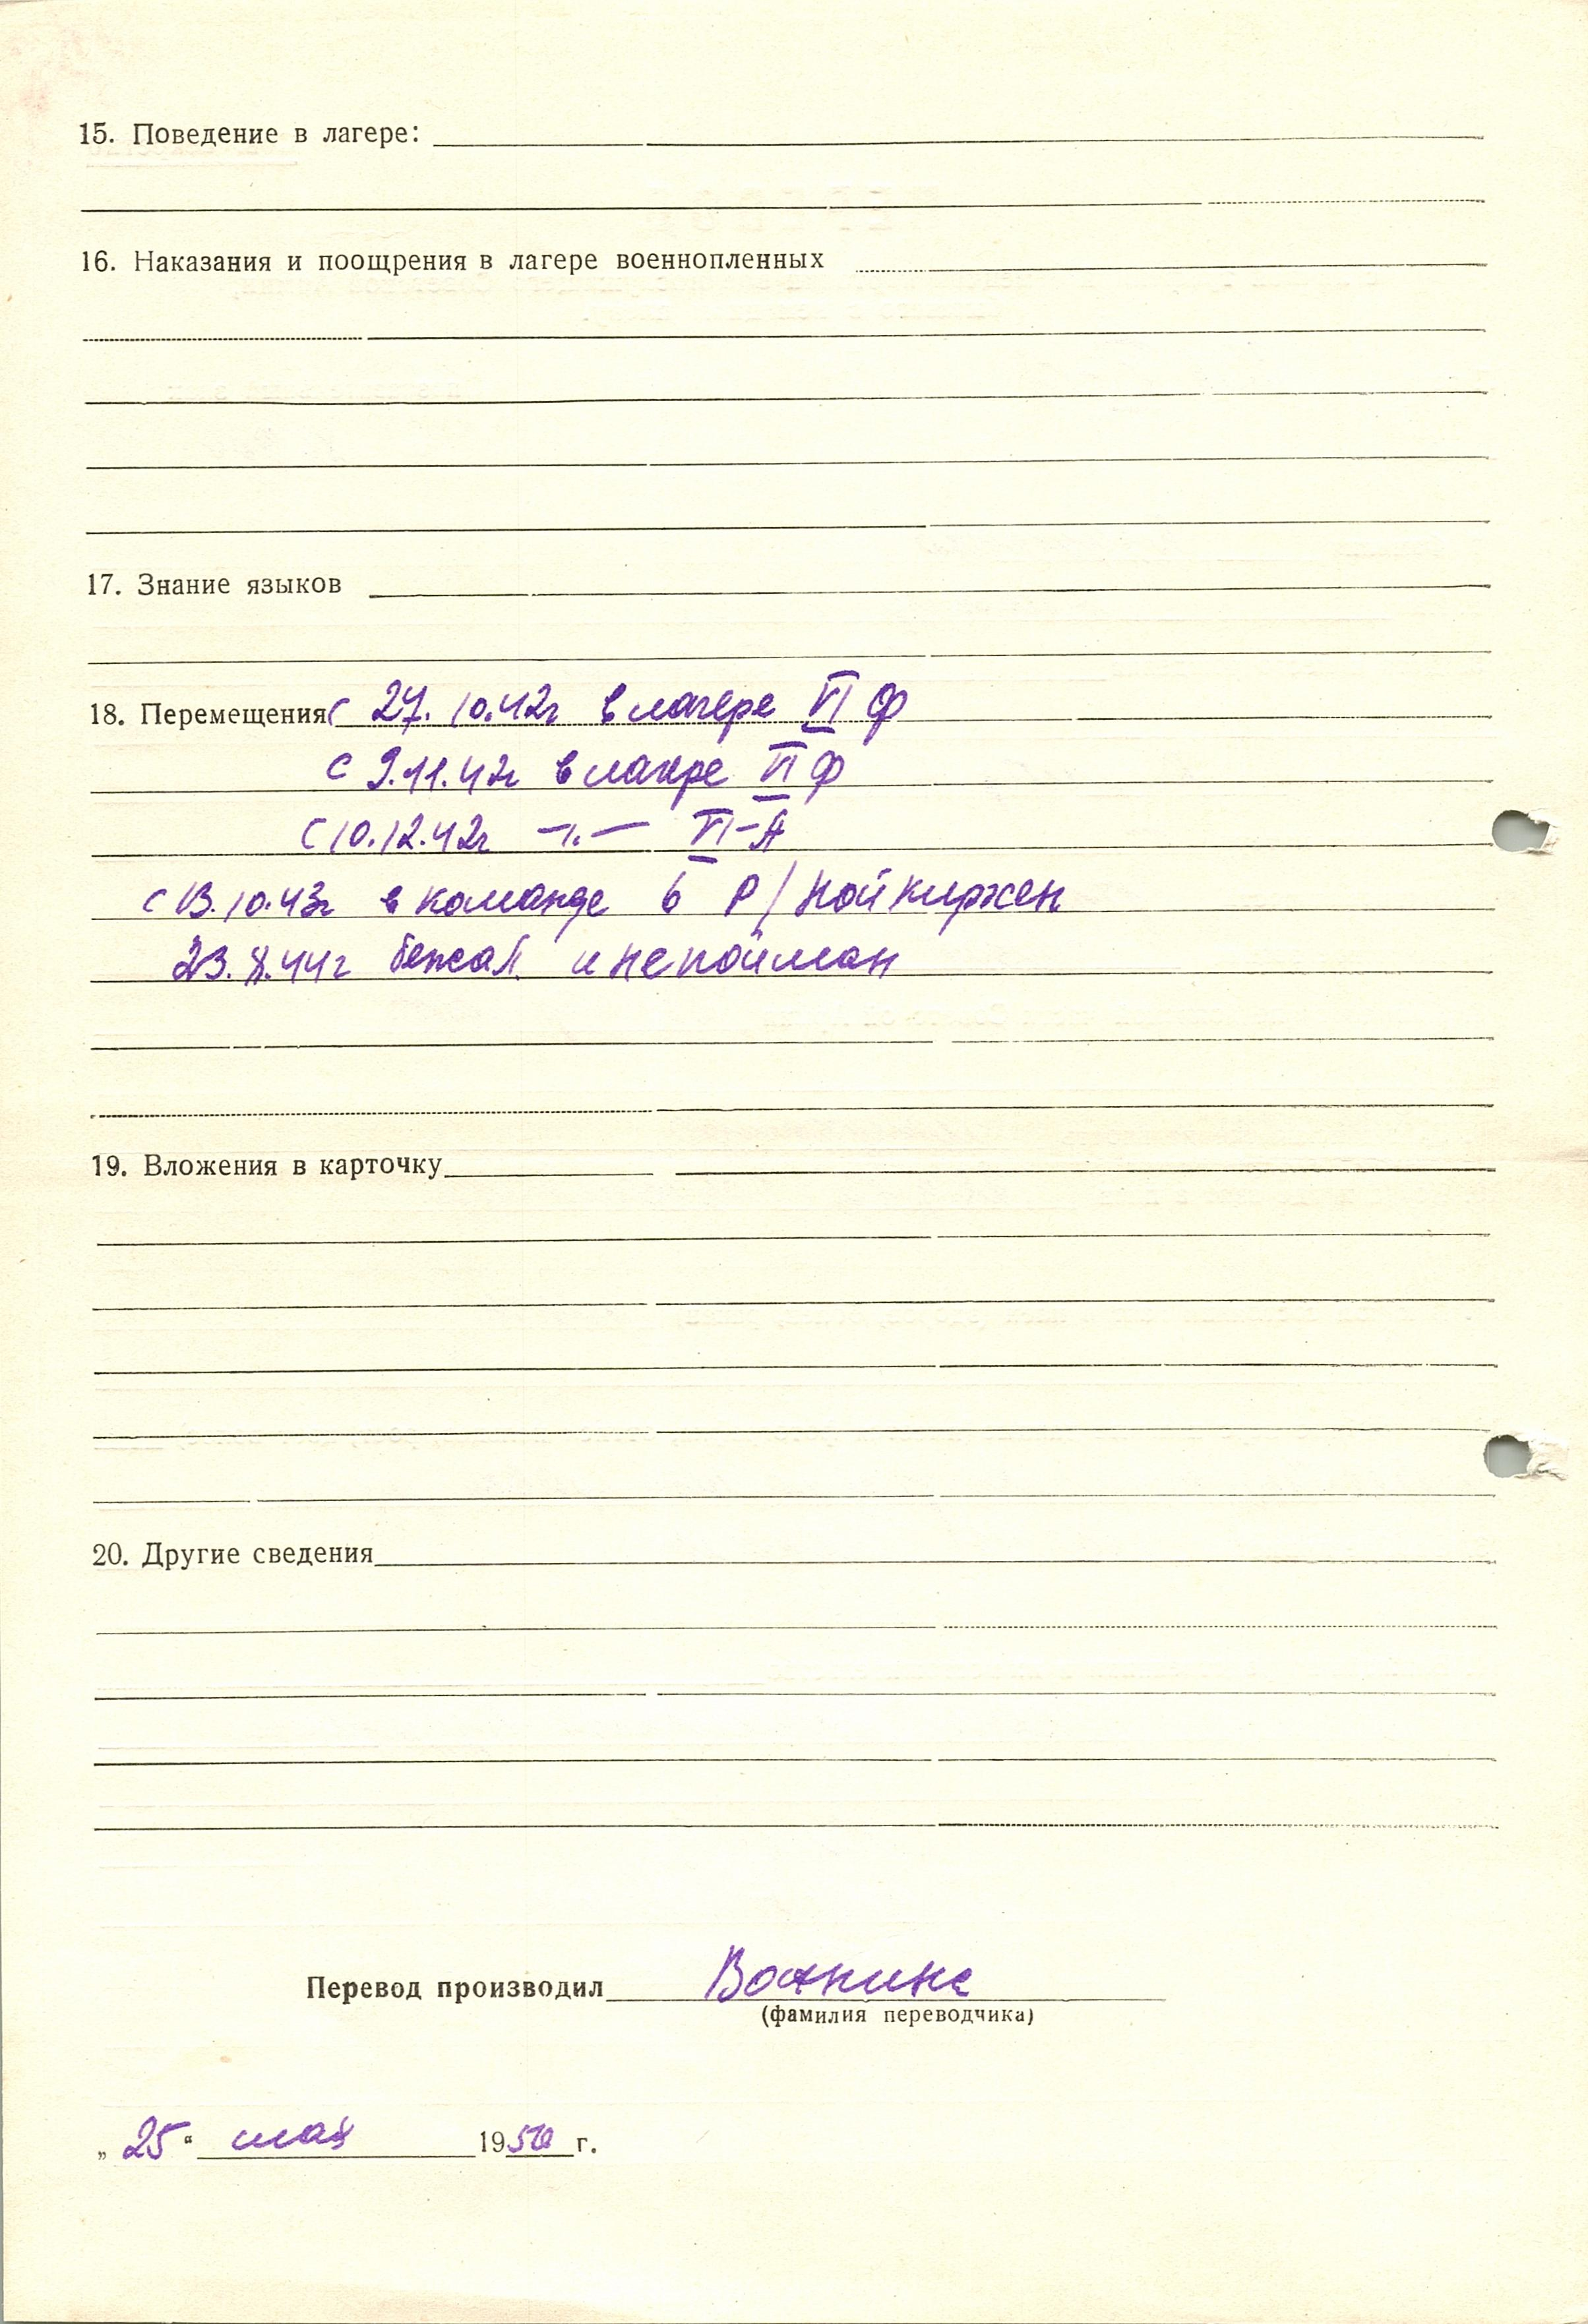 15. Поведение в лагере:
16. Наказания и поощрения в лагере военнопленных
17. Знание языков
18. Перемещения с 27.10.42г в лагере VI Ф
с 9.11.42г в лагере VI Ф
с 10.12.42г —"— VI-А
с 13.10.43г в команде 6 Р/Нойкиржен
23.8.44г бежал и не пойман
19. Вложения в карточку
20. Другие сведения
Перевод производил
(фамилия переводчика)
„25“ мая 1950 г.